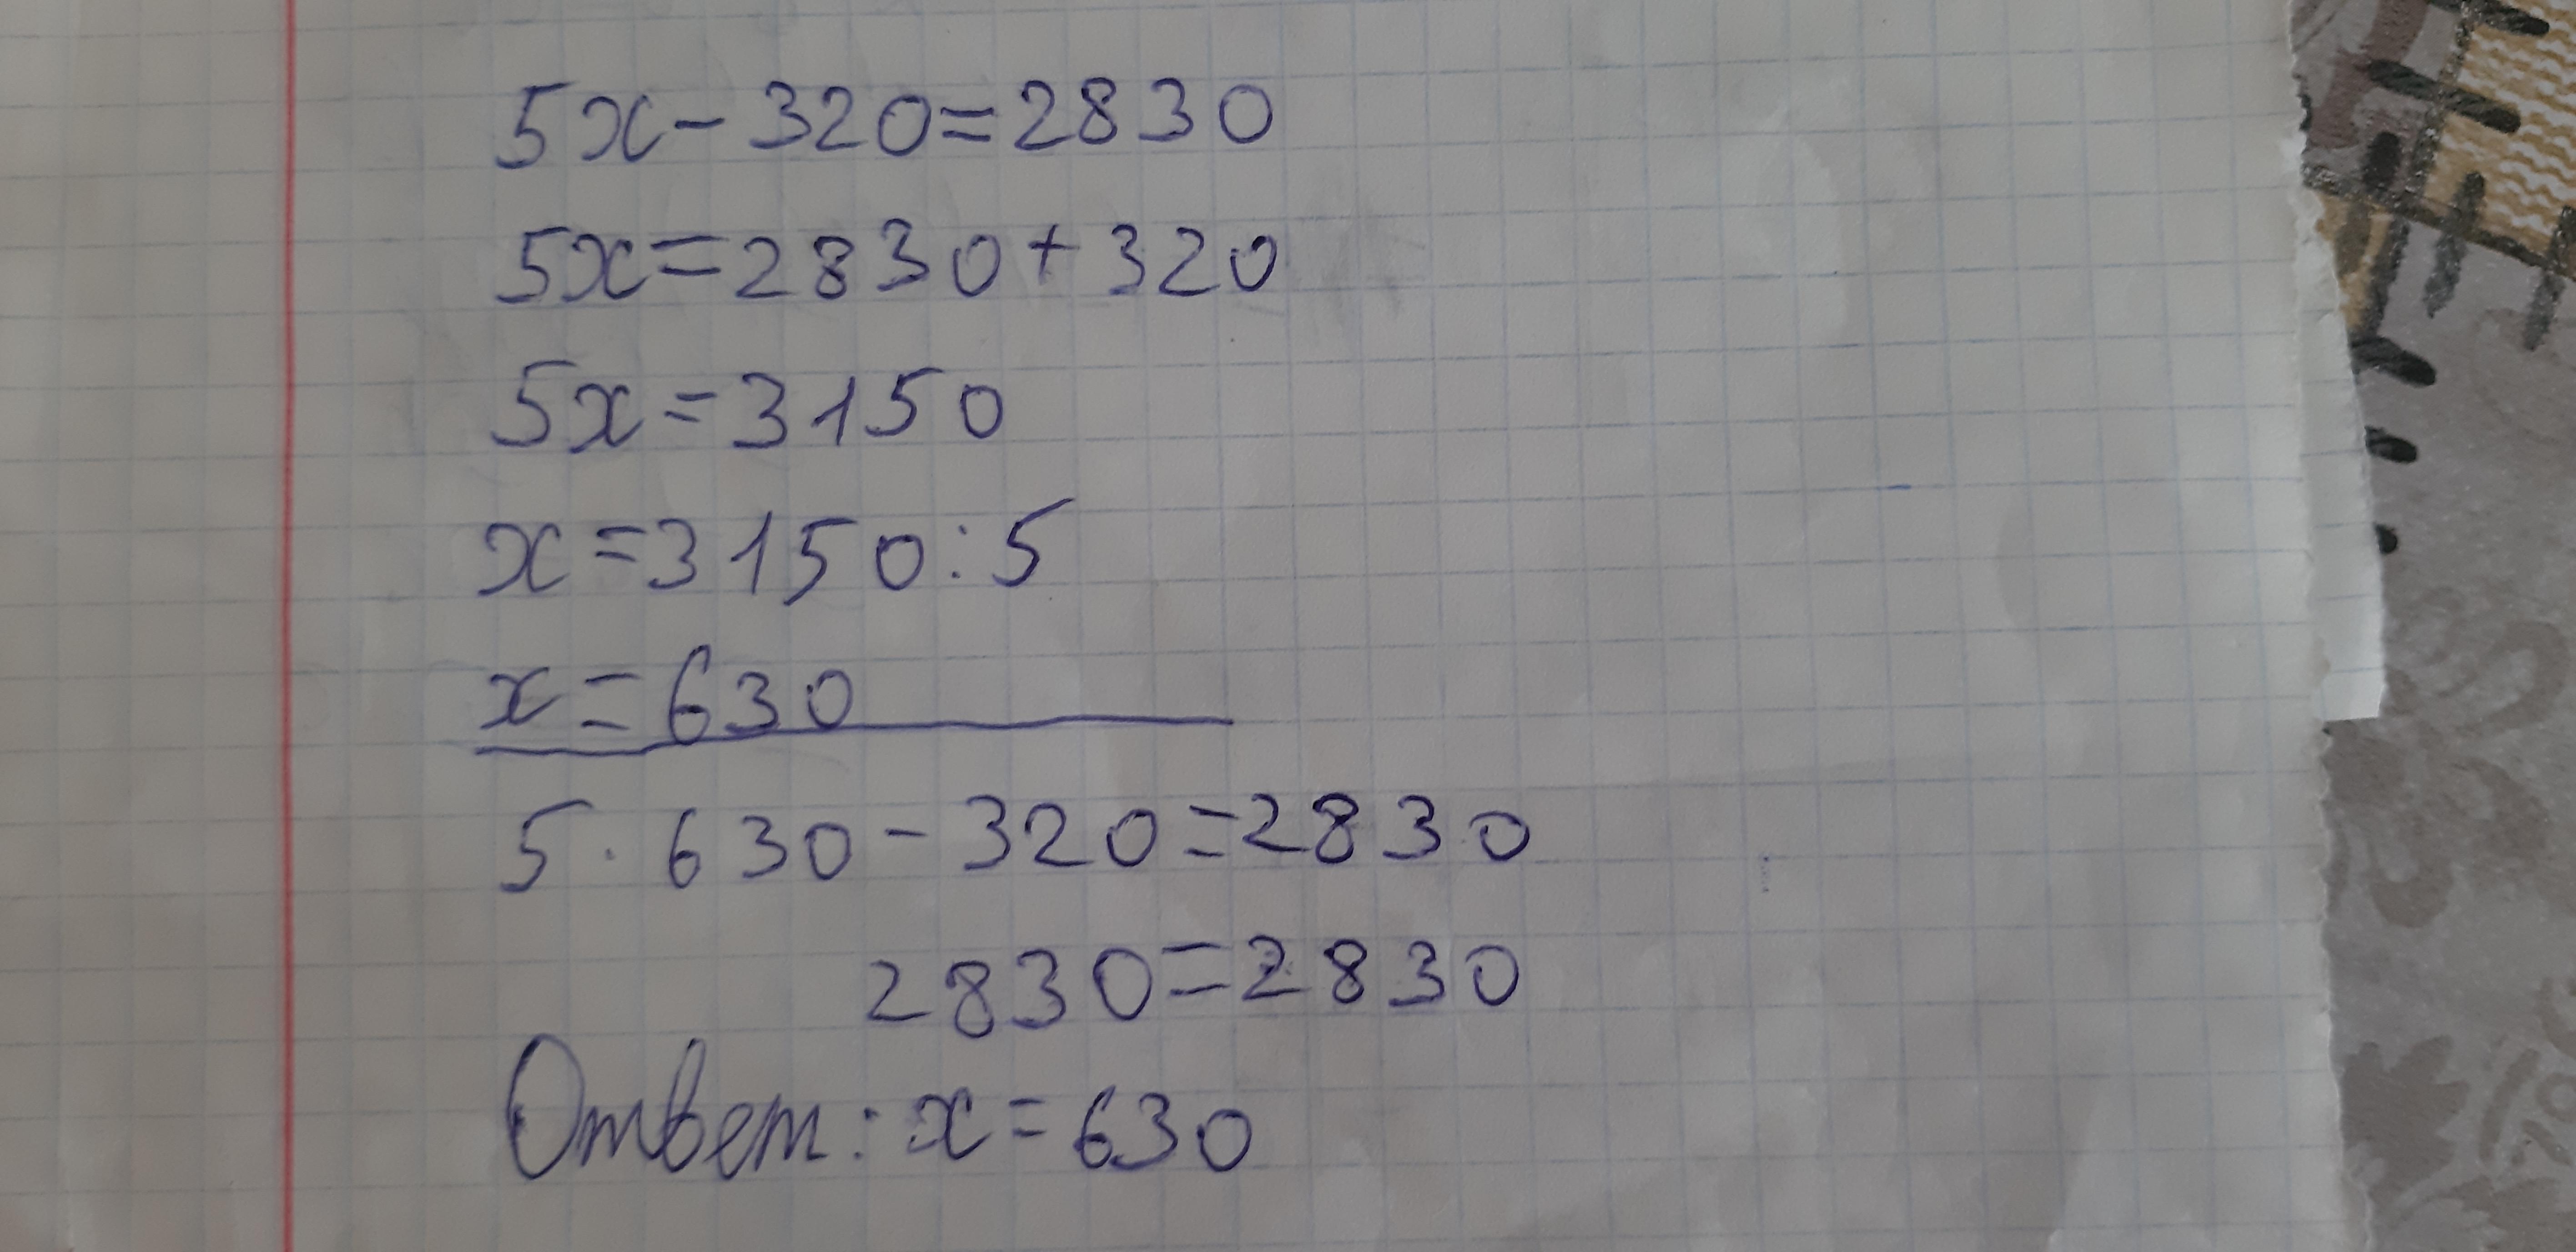 5x-320=2830
5x=2830+320
5x=3150
x=3150:5
x=630
5·630-320=2830
2830=2830
Ответ: x=630